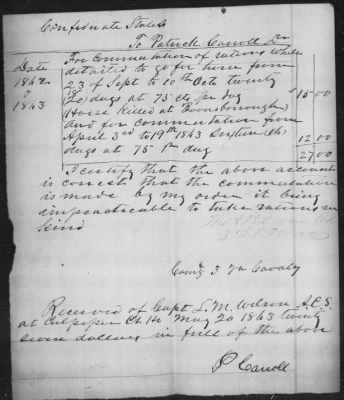 Confederate States
To Patrick Carroll Dr
Date
1862
&
1863
For Commutation of rations while
detailed to go for horse from
23 of Sept to 10th Octo twenty
(20) days at 75 cts pr day 15.00
Horse Killed at Boonsborough
and for commutation from
April 3rd to 19th 1863 Sixteen (16)
days at 75 pr day 12.00
27.00
I certify that the above account
is correct that the commutation
is made by my order it being
impracticable to take rations in
kind
Comg 3 Va Cavaly
Received of Capt L. M. Wilson A.C.S.
at Culpeper Ct. H. May 20 1863 twenty
seven dollars in full of the above
P Carroll